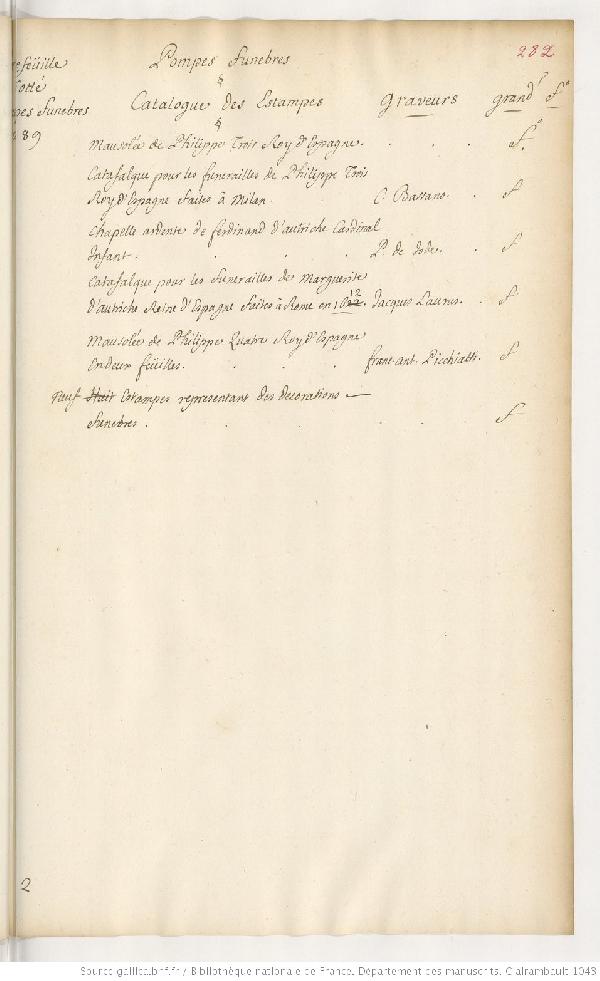 Pompes Funebres
282
feüille
Cotté
pes Funebres
89
Catalogue des Estampes Graveurs grandr fo
Mausolée de Philippe Trois Roy d'Espagne . . . . fo
Catafalque pour les funerailles de Philippe Trois
Roy d'Espagne faites à Milan. C. Bassano. . f
Chapelle ardente de ferdinand d'autriche Cardinal
Infant. . . . P. de Jode. . f
Catafalque pour les funerailles de Marguerite
D'autriche Reine d'Espagne faites à Rome en 1612. Jacques Laurus. . f
Mausolée de Philippe Quatre Roy d'Espagne
en deux feüilles. . . . fran: ant. Picchiatti. f
Neuf Huit Estampes representant des decorations
funebres . . . . f
2
Source gallica.bnf.fr / Bibliothèque nationale de France. Département des manuscrits. Clairambault 1043